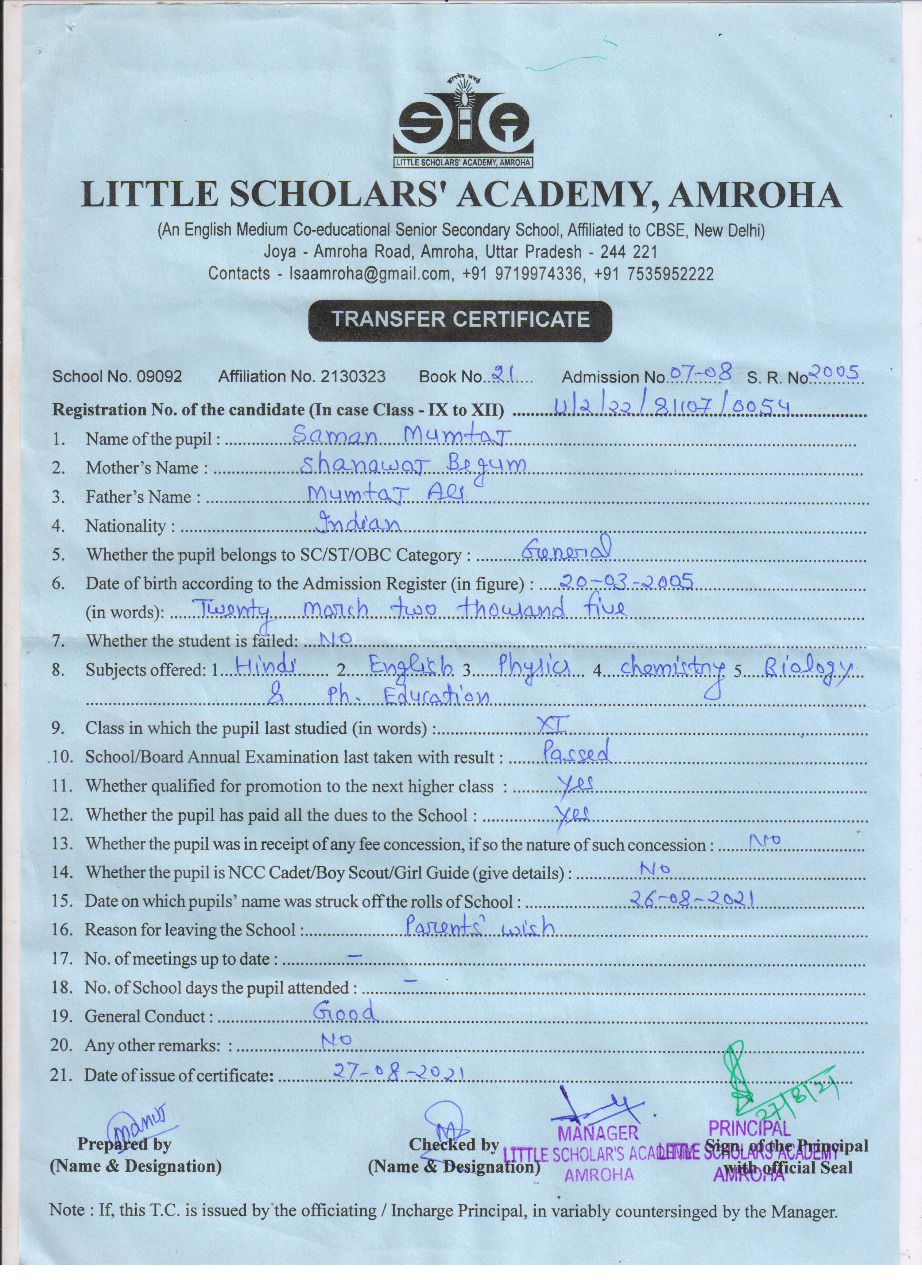 LITTLE SCHOLARS' ACADEMY, AMROHA
LITTLE SCHOLARS' ACADEMY, AMROHA
(An English Medium Co-educational Senior Secondary School, Affiliated to CBSE, New Delhi)
Joya - Amroha Road, Amroha, Uttar Pradesh - 244 221
Contacts - lsaamroha@gmail.com, +91 9719974336, +91 7535952222
TRANSFER CERTIFICATE
School No. 09092 Affiliation No. 2130323 Book No. 21 Admission No. 07-08 S. R. No. 2005
Registration No. of the candidate (In case Class - IX to XII) U/2/22/81107/0054
1. Name of the pupil : Saman Mumtaz
2. Mother's Name : Shanawaz Begum
3. Father's Name : Mumtaz Ali
4. Nationality : Indian
5. Whether the pupil belongs to SC/ST/OBC Category : General
6. Date of birth according to the Admission Register (in figure) : 20-03-2005
(in words): Twenty march two thousand five
7. Whether the student is failed: NO
8. Subjects offered: 1. Hindi 2. English 3. Physics 4. chemistry 5. Biology
& Ph. Education
9. Class in which the pupil last studied (in words) : XI
10. School/Board Annual Examination last taken with result : Passed
11. Whether qualified for promotion to the next higher class : yes
12. Whether the pupil has paid all the dues to the School : yes
13. Whether the pupil was in receipt of any fee concession, if so the nature of such concession : NO
14. Whether the pupil is NCC Cadet/Boy Scout/Girl Guide (give details) : NO
15. Date on which pupils' name was struck off the rolls of School : 26-08-2021
16. Reason for leaving the School : Parents' wish
17. No. of meetings up to date : -
18. No. of School days the pupil attended : -
19. General Conduct : Good
20. Any other remarks: : NO
21. Date of issue of certificate: 27-08-2021
27/8/21
Prepared by Checked by MANAGER PRINCIPAL Sign. of the Principal
(Name & Designation) (Name & Designation) LITTLE SCHOLAR'S ACADEMY LITTLE SCHOLAR'S ACADEMY with official Seal
AMROHA AMROHA
Note : If, this T.C. is issued by the officiating / Incharge Principal, in variably countersinged by the Manager.